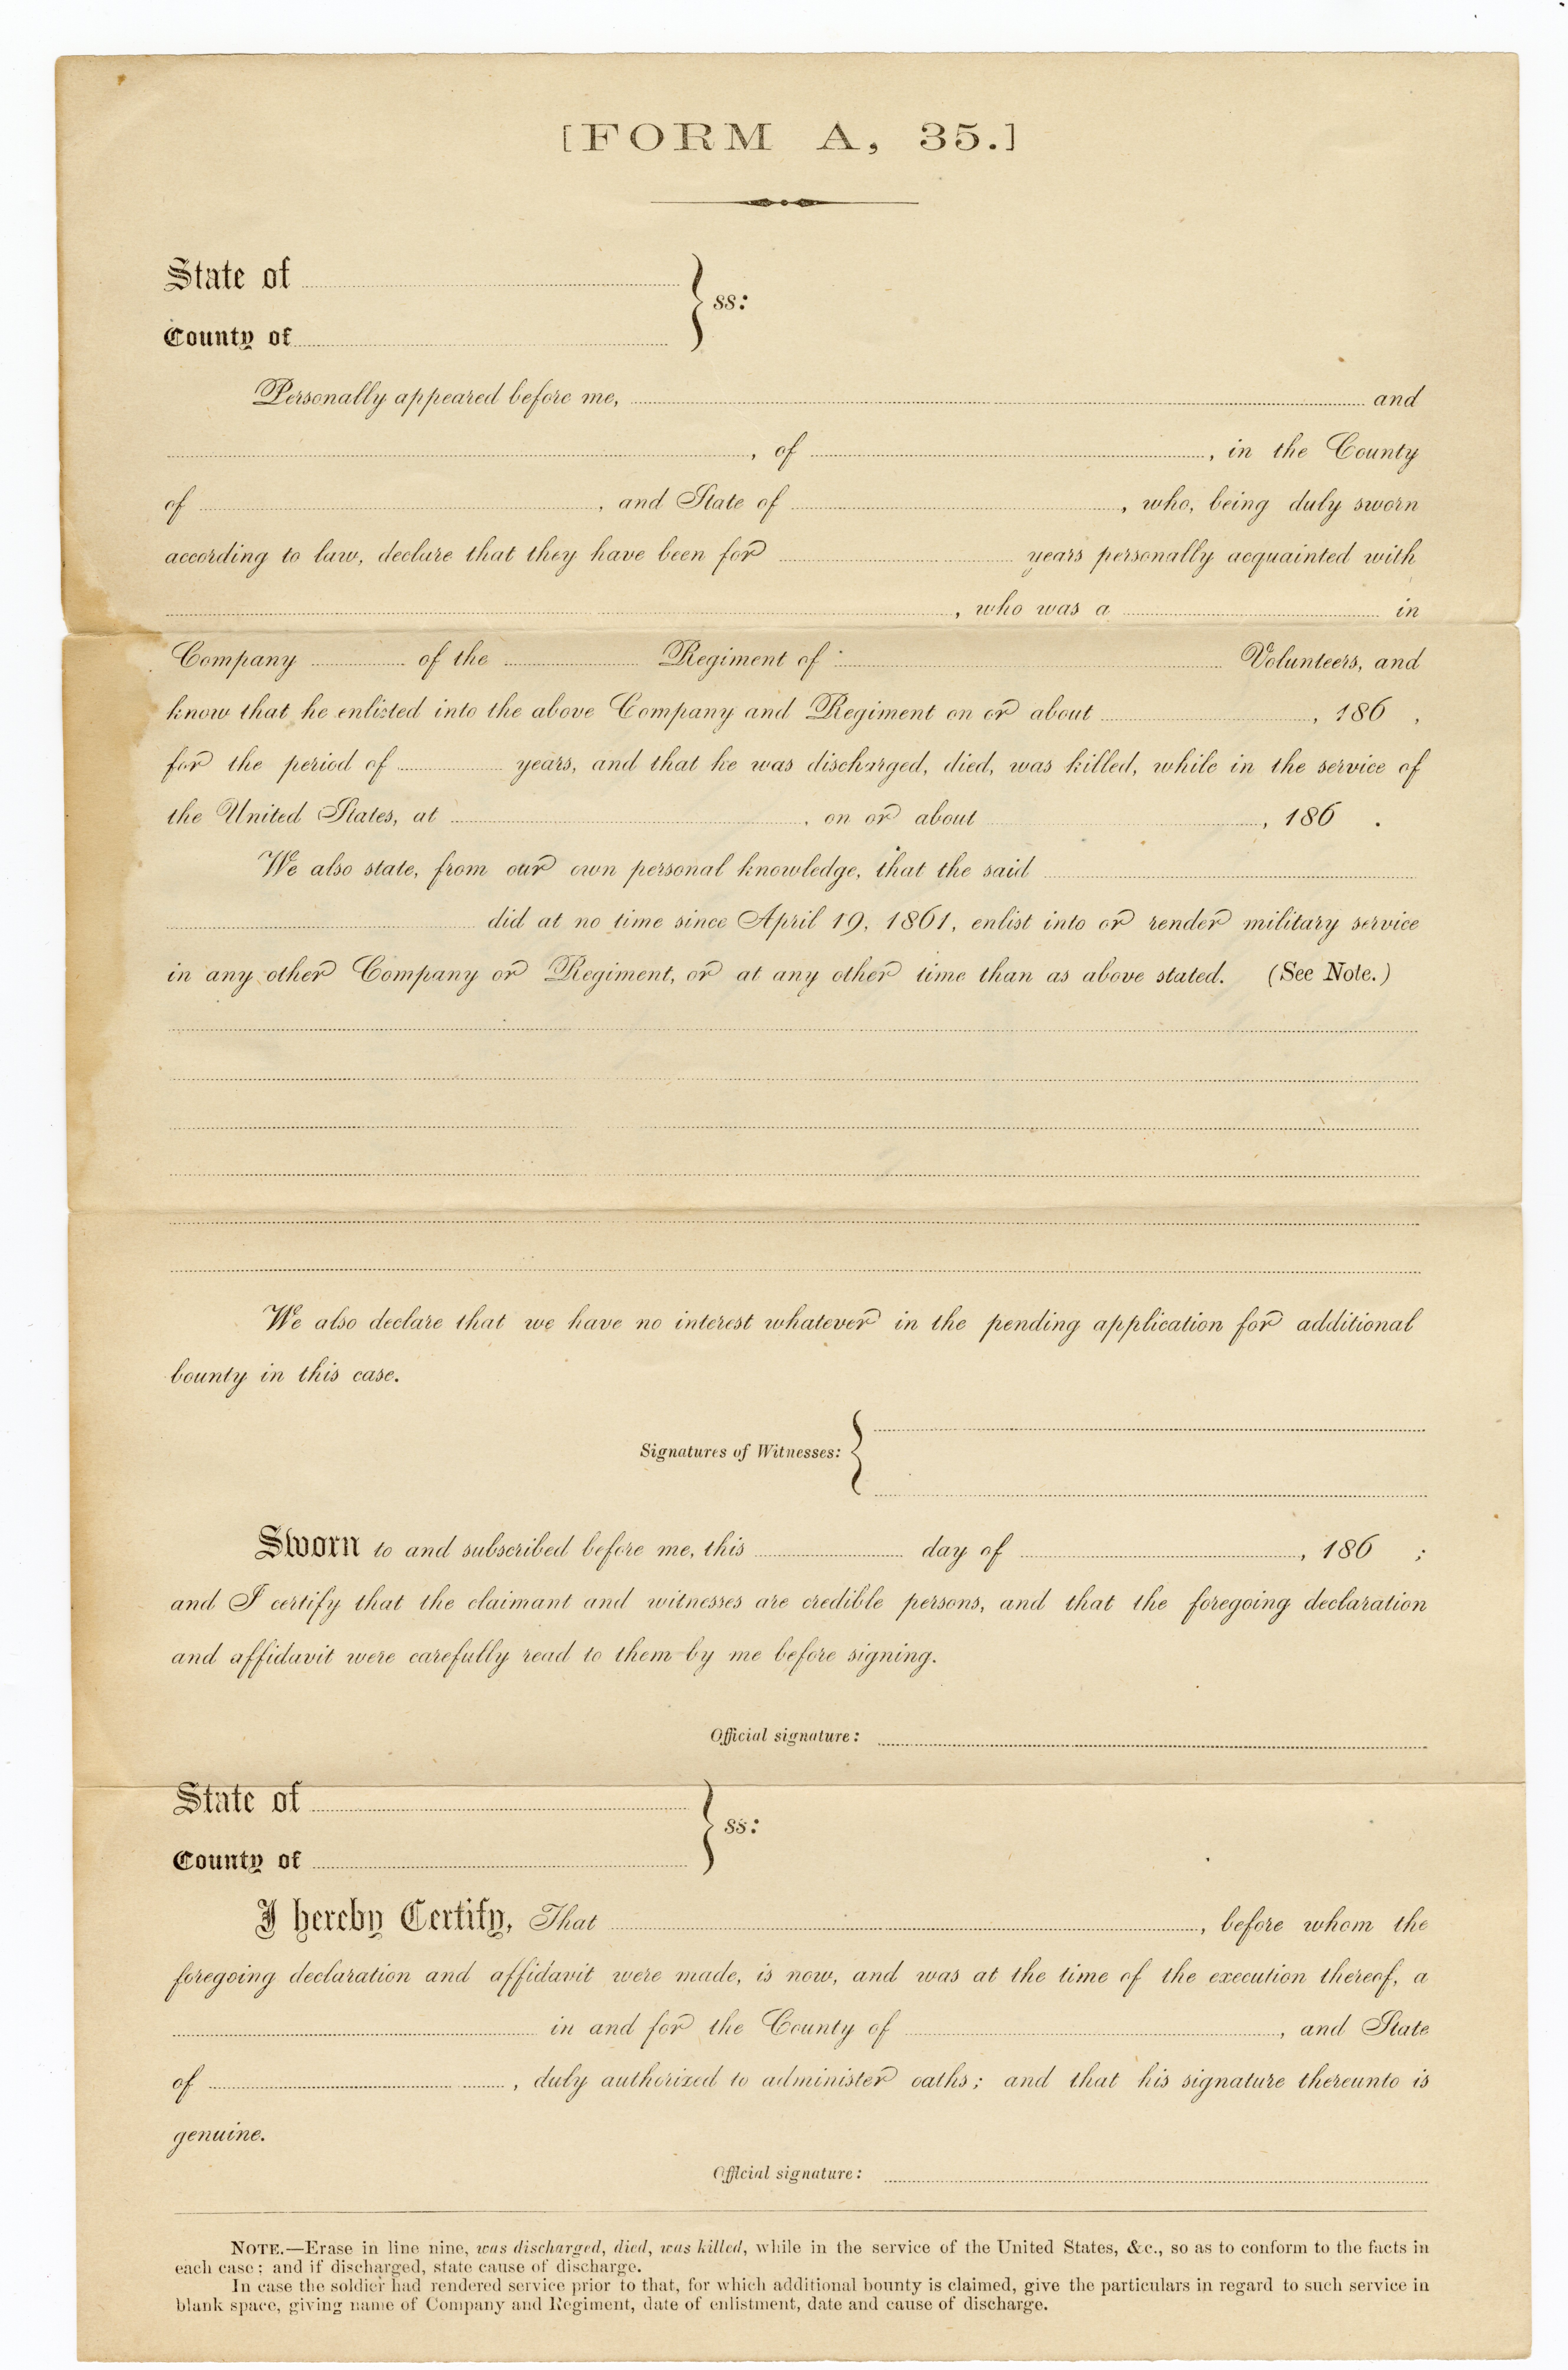 [FORM A, 35.]
State of
County of
} ss:
Personally appeared before me, and
, of , in the County
of , and State of , who, being duly sworn
according to law, declare that they have been for years personally acquainted with
, who was a in
Company of the Regiment of Volunteers, and
know that he enlisted into the above Company and Regiment on or about , 186 ,
for the period of years, and that he was discharged, died, was killed, while in the service of
the United States, at , on or about , 186 .
We also state, from our own personal knowledge, that the said
did at no time since April 19, 1861, enlist into or render military service
in any other Company or Regiment, or at any other time than as above stated. (See Note.)
We also declare that we have no interest whatever in the pending application for additional
bounty in this case.
Signatures of Witnesses: {
Sworn to and subscribed before me, this day of , 186 ;
and I certify that the claimant and witnesses are credible persons, and that the foregoing declaration
and affidavit were carefully read to them by me before signing.
Official signature:
State of
County of
} ss:
I hereby Certify, That , before whom the
foregoing declaration and affidavit were made, is now, and was at the time of the execution thereof, a
in and for the County of , and State
of , duly authorized to administer oaths; and that his signature thereunto is
genuine.
Official signature:
NOTE.—Erase in line nine, was discharged, died, was killed, while in the service of the United States, &c., so as to conform to the facts in
each case; and if discharged, state cause of discharge.
In case the soldier had rendered service prior to that, for which additional bounty is claimed, give the particulars in regard to such service in
blank space, giving name of Company and Regiment, date of enlistment, date and cause of discharge.